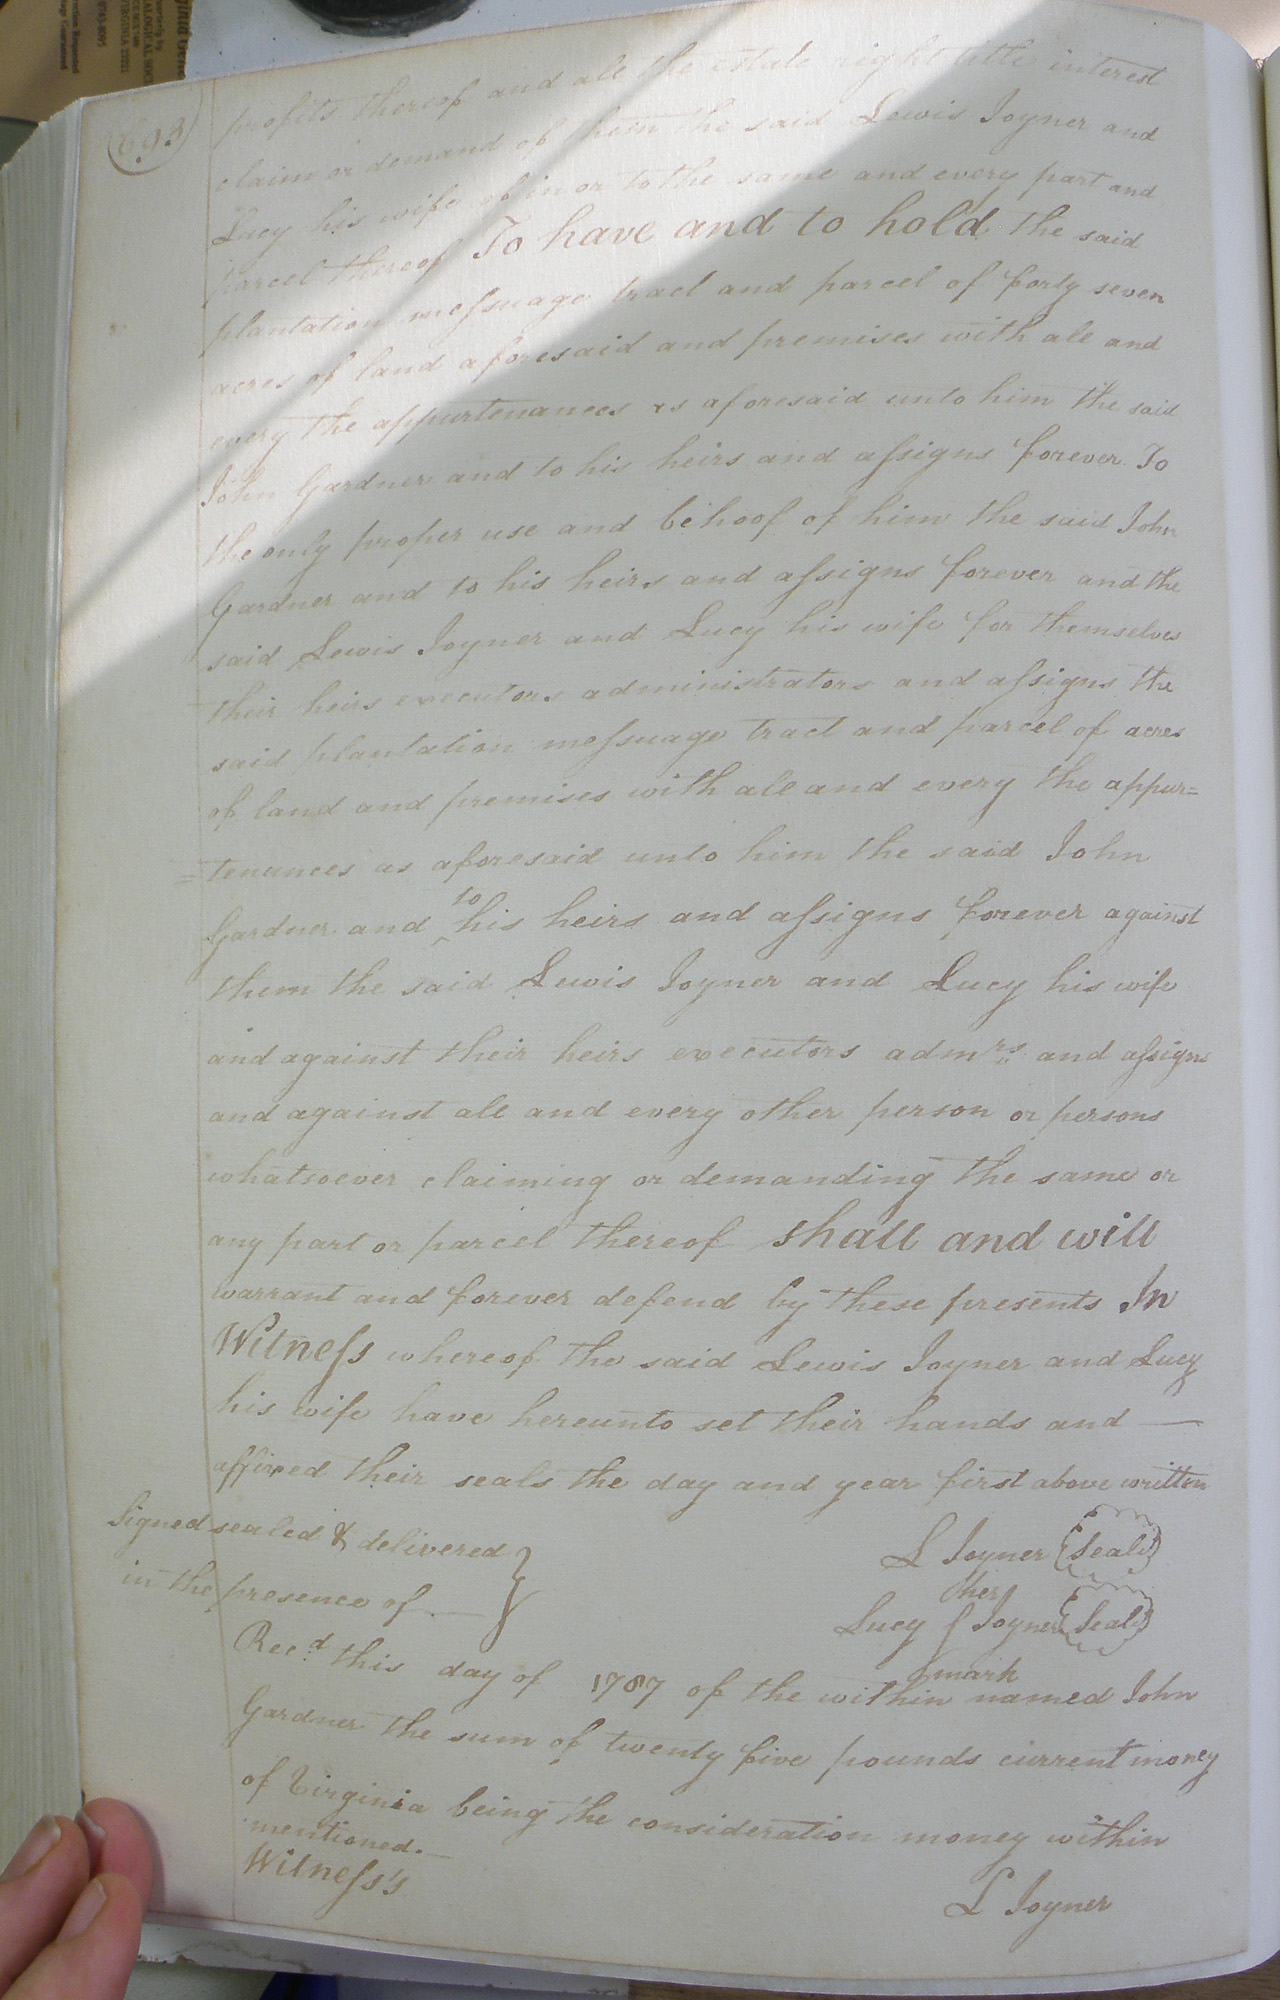 693
profits thereof and all the estate right title interest
claim or demand of them the said Lewis Joyner and
Lucy his wife of in or to the same and every part and
parcel thereof To have and to hold the said
plantation meſsuage tract and parcel of forty seven
acres of land aforesaid and premises with all and
every the appurtenances as aforesaid unto him the said
John Gardner and to his heirs and aſsigns forever. To
the only proper use and behoof of him the said John
Gardner and to his heirs and aſsigns forever and the
said Lewis Joyner and Lucy his wife for themselves
their heirs executors administrators and aſsigns the
said plantation meſsuage tract and parcel of acres
of land and premises with all and every the appur=
=tenances as aforesaid unto him the said John
Gardner and ^to his heirs and aſsigns forever against
them the said Lewis Joyner and Lucy his wife
and against their heirs executors admrs. and aſsigns
and against all and every other person or persons
whatsoever claiming or demanding the same or
any part or parcel thereof shall and will
warrant and forever defend by these presents In
Witneſs whereof the said Lewis Joyner and Lucy
his wife have hereunto set their hands and —
affixed their seals the day and year first above written
Signed sealed & delivered }
in the presence of —
L Joyner (Seal)
her
Lucy Joyner (Seal)
mark
Recd. this day of 1787 of the within named John
Gardner the sum of twenty five pounds current money
of Virginia being the consideration money within
mentioned. —
Witneſs's
L Joyner